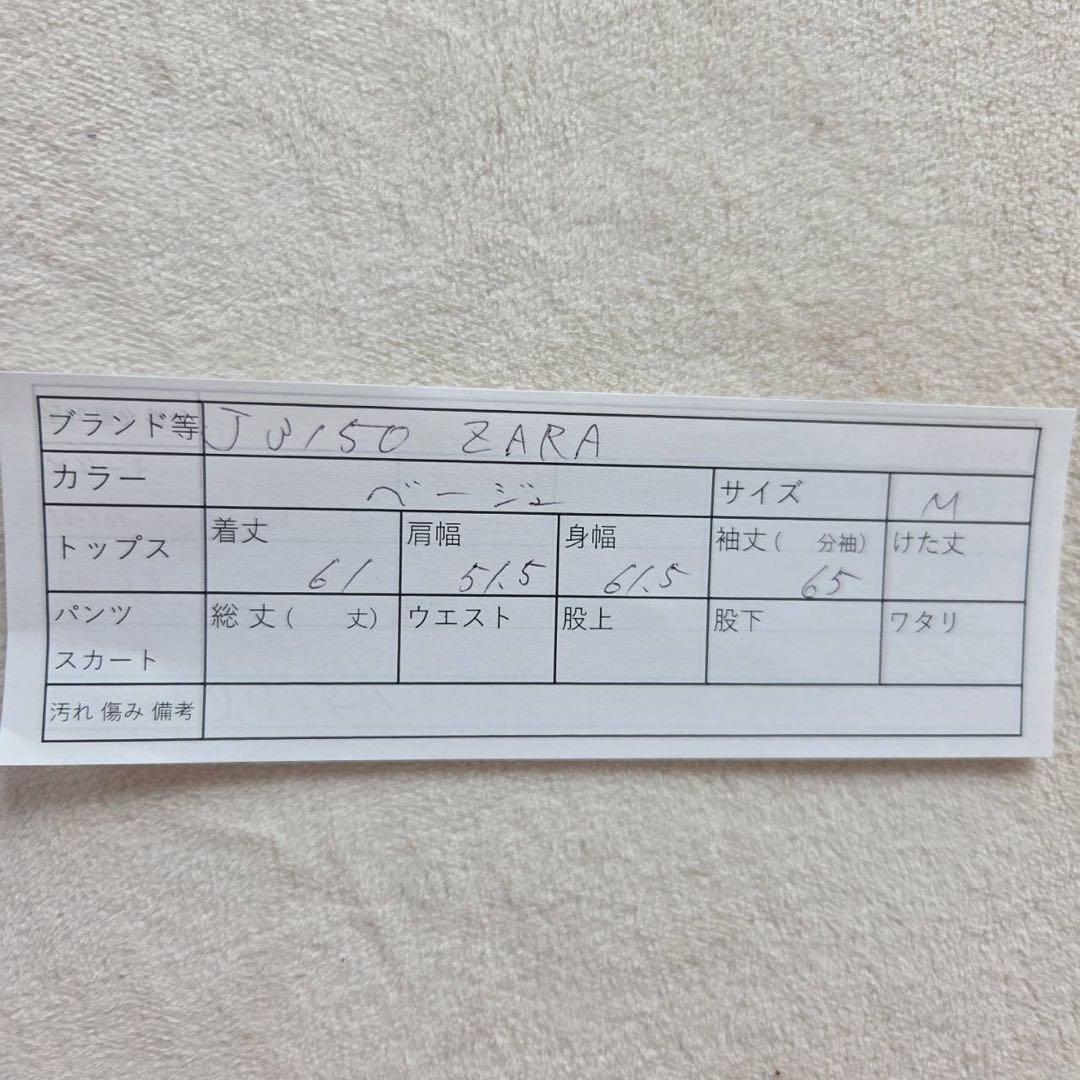 ブランド等 J3150 ZARA
カラー ベージュ サイズ M
トップス 着丈 61 肩幅 51.5 身幅 61.5 袖丈( 分袖) 65 けた丈
パンツ スカート 総丈( 丈) ウエスト 股上 股下 ワタリ
汚れ 傷み 備考